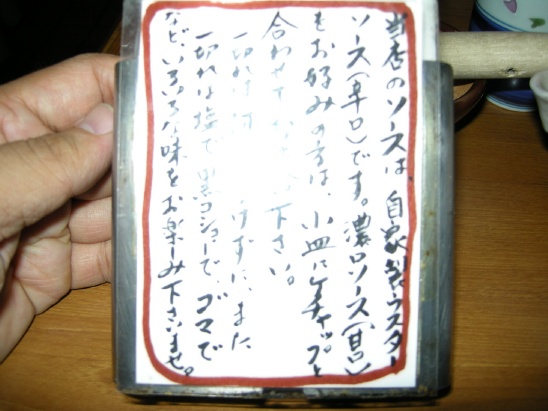 当店のソースは、自家製ウスター
ソース(辛口)です。濃口ソース(甘口)
をお好みの方は、小皿にケチャップと
合わせて 下さい。
一切れは けずに、また
一切れは塩で、黒コショーで、ゴマで
など、いろいろな味をお楽しみ下さいませ。